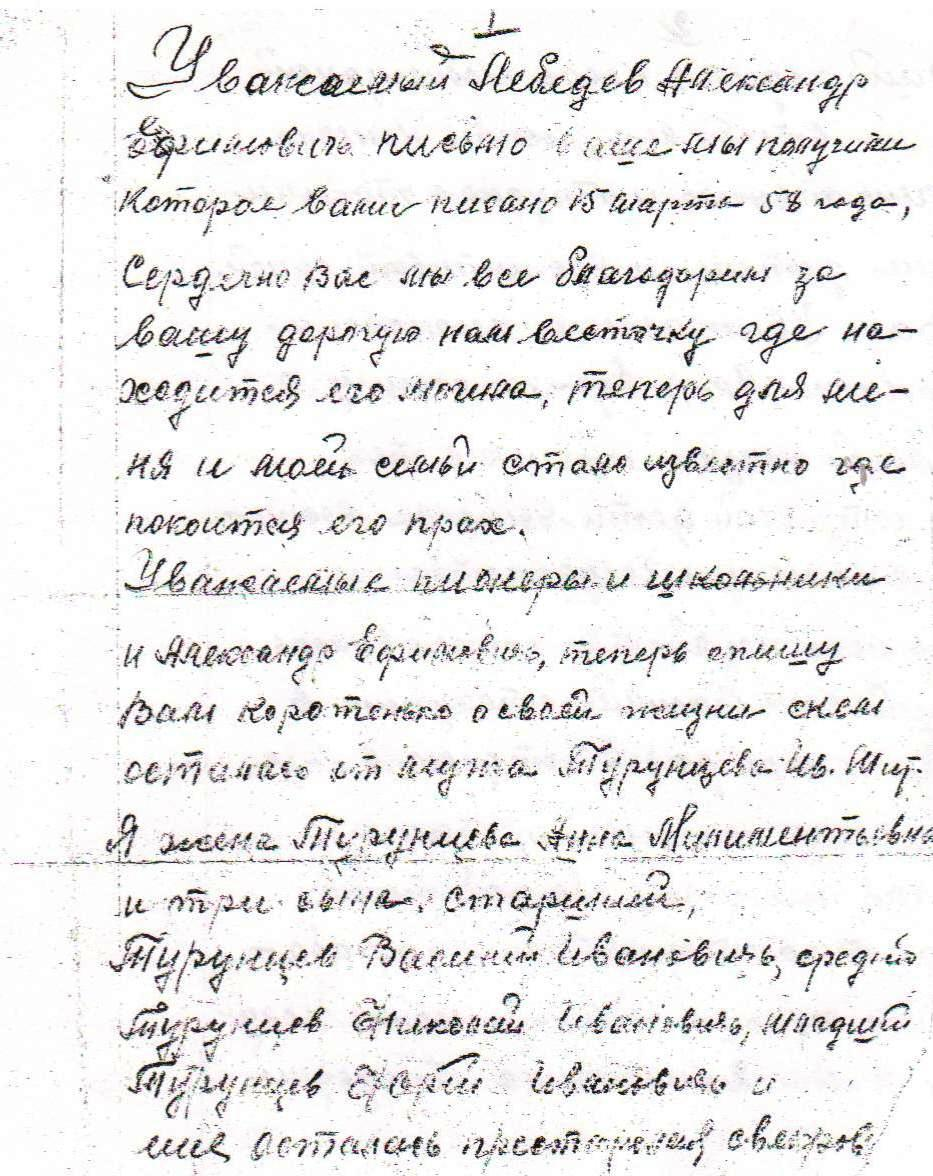 1
Уважаемый Лебедев Александр
Ефимовичь письмо ваше мы получили
которое вами писано 15 марта 58 года,
Сердечно Вас мы все благодарим за
вашу дорогую нам весточку где на-
ходится его могила, теперь для ме-
ня и моей семьи стало известно где
покоится его прах.
Уважаемые пионеры и школьники
и Александр Ефимовичь, теперь опишу
Вам коротенько о своей жизни с кем
осталась от мужа Турунцева Ив. Мит.
Я жена Турунцева Анна
и три сына. старший,
Турунцев Василий Ивановичь, средий
Турунцев Николай Ивановичь, младший
Турунцев Ивановичь и
еще осталась престарелая свекровь